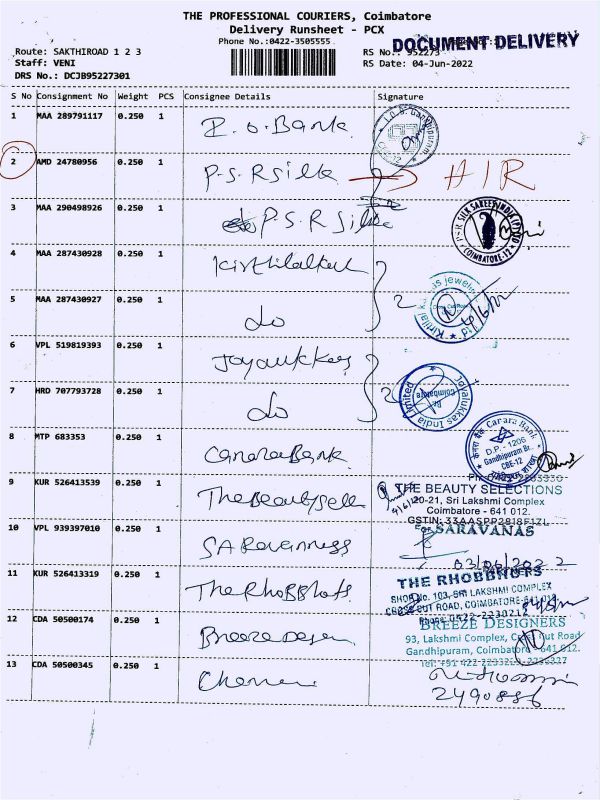 THE PROFESSIONAL COURIERS, Coimbatore
Delivery Runsheet - PCX
Phone No.:0422-3505555
DOCUMENT DELIVERY
Route: SAKTHIROAD 1 2 3
RS No.: 952273
Staff: VENI
RS Date: 04-Jun-2022
DRS No.: DCJB95227301
S No Consignment No Weight PCS Consignee Details Signature
1 MAA 289791117 0.250 1 I.O.Bank
2 AMD 24780956 0.250 1 P.S.R Silk → AIR
3 MAA 290498926 0.250 1 P.S.R Silk
PSR SILK SAREES INDIA (P) LTD COIMBATORE-12
4 MAA 287430928 0.250 1 Kirthilalkal
5 MAA 287430927 0.250 1 do 2
6 VPL 519819393 0.250 1 Joyalukkas
Joyalukkas India Limited Coimbatore
7 HRD 707793728 0.250 1 do 2
8 MTP 683353 0.250 1 Canara Bank
Canara Bank
D.P. - 1206
Gandhipuram Br.
CBE-12
9 KUR 526413539 0.250 1 The Beauty Sele
THE BEAUTY SELECTIONS
20-21, Sri Lakshmi Complex
Coimbatore - 641 012.
10 VPL 939397010 0.250 1
For SARAVANAS
03/06/2022
11 KUR 526413319 0.250 1 The Rhobbhots
THE RHOBBHOTS
SHOP No. 103, SRI LAKSHMI COMPLEX
CROSS CUT ROAD, COIMBATORE-641 012.
12 CDA 50500174 0.250 1 Breeze Design
BREEZE DESIGNERS
93, Lakshmi Complex, Cross Cut Road
Gandhipuram, Coimbatore - 641 012.
13 CDA 50500345 0.250 1
2490886